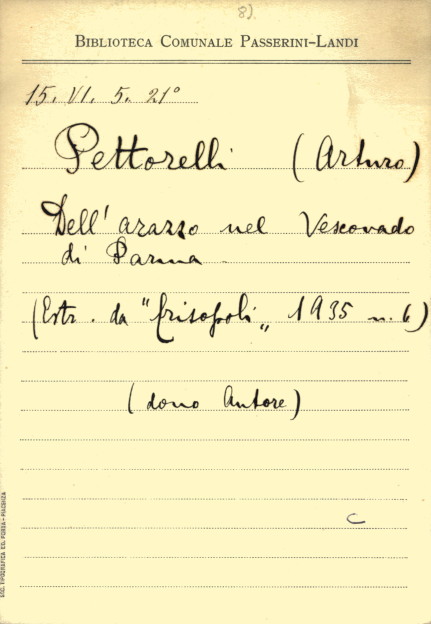 8)
BIBLIOTECA COMUNALE PASSERINI-LANDI
15. VI. 5. 21°
Pettorelli (Arturo)
Dell'arazzo nel Vescovado
di Parma.
(Estr. da "Crisopoli„ 1935 n. 6)
(dono Autore)
C
SOC. TIPOGRAFICA ED. PORTA - PIACENZA